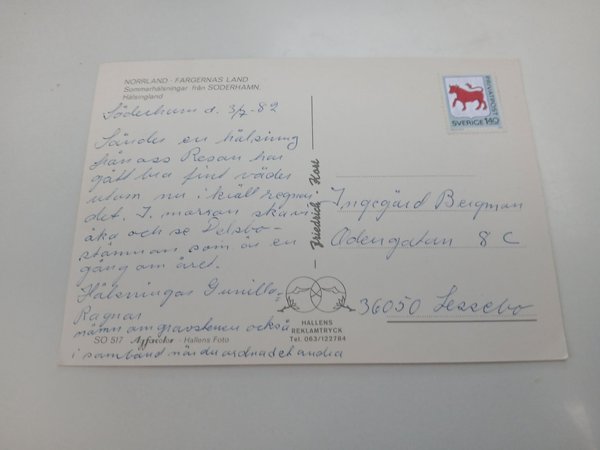 NORRLAND - FÄRGERNAS LAND
Sommarhälsningar från SÖDERHAMN,
Hälsingland
Söderhamn d. 3/7-82
Sänder en hälsning
från oss Resan har
gått bra fint väder
utom nu i kväll regnar
det. I morron ska vi
åka och se Delsbo-
stämman som är en
gång om året.
Hälsningar Gunilla-
Ragnar
nämn om gravstenen också
i samband när du ordnadet andra
SO 517 Agfacolor - Hallens Foto
Friedrich Host
HALLENS
REKLAMTRYCK
Tel. 063/122784
PRIVATPOST
SVERIGE 140
Ingegärd Bergman
Odengatan 8 C
36050 Lessebo